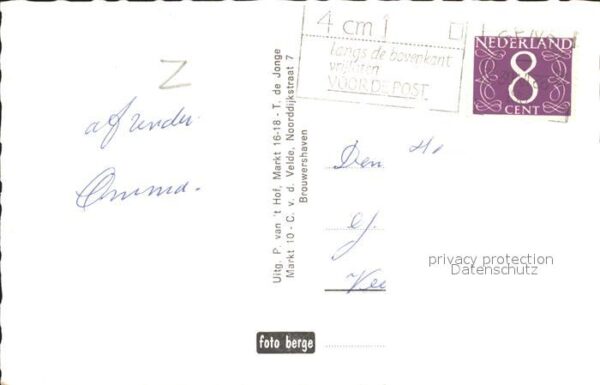 4 cm
langs de bovenkant
vrijlaten
VOOR DE POST
NEDERLAND
8
CENT
Z
afzender
Uitg. P. van 't Hof, Markt 16-18 - T. de Jonge
Markt 10 - C. v. d. Velde, Noorddijkstraat 7
Brouwershaven
Den
privacy protection
Datenschutz
foto berge